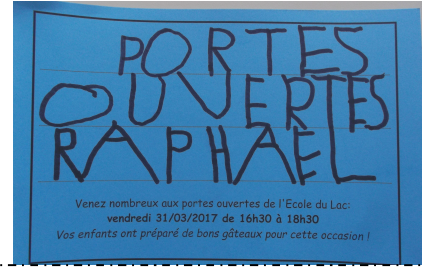 PORTES
OUVERTES
RAPHAEL
Venez nombreux aux portes ouvertes de l'Ecole du Lac:
vendredi 31/03/2017 de 16h30 à 18h30
Vos enfants ont préparé de bons gâteaux pour cette occasion !